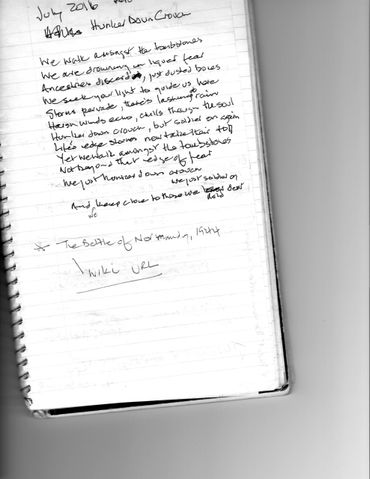 July 2016
Hunker Down Crouch
We walk amongst the tombstones
We are drowning in liquid fear
Ancestries discard, just dusted bones
We seek your light to guide us here
Storms parade, there's lashing rain
Harsh winds echo, chills through the soul
Hunker down crouch, but soldier on again
Life's edge storms now take their toll
Yet we walk amongst the tombstones
Not beyond that edge of fear
We just hunker down crouch
We just soldier on
And keep close to those we hold dear
* The Battle of Normandy, 1944
Wiki URL